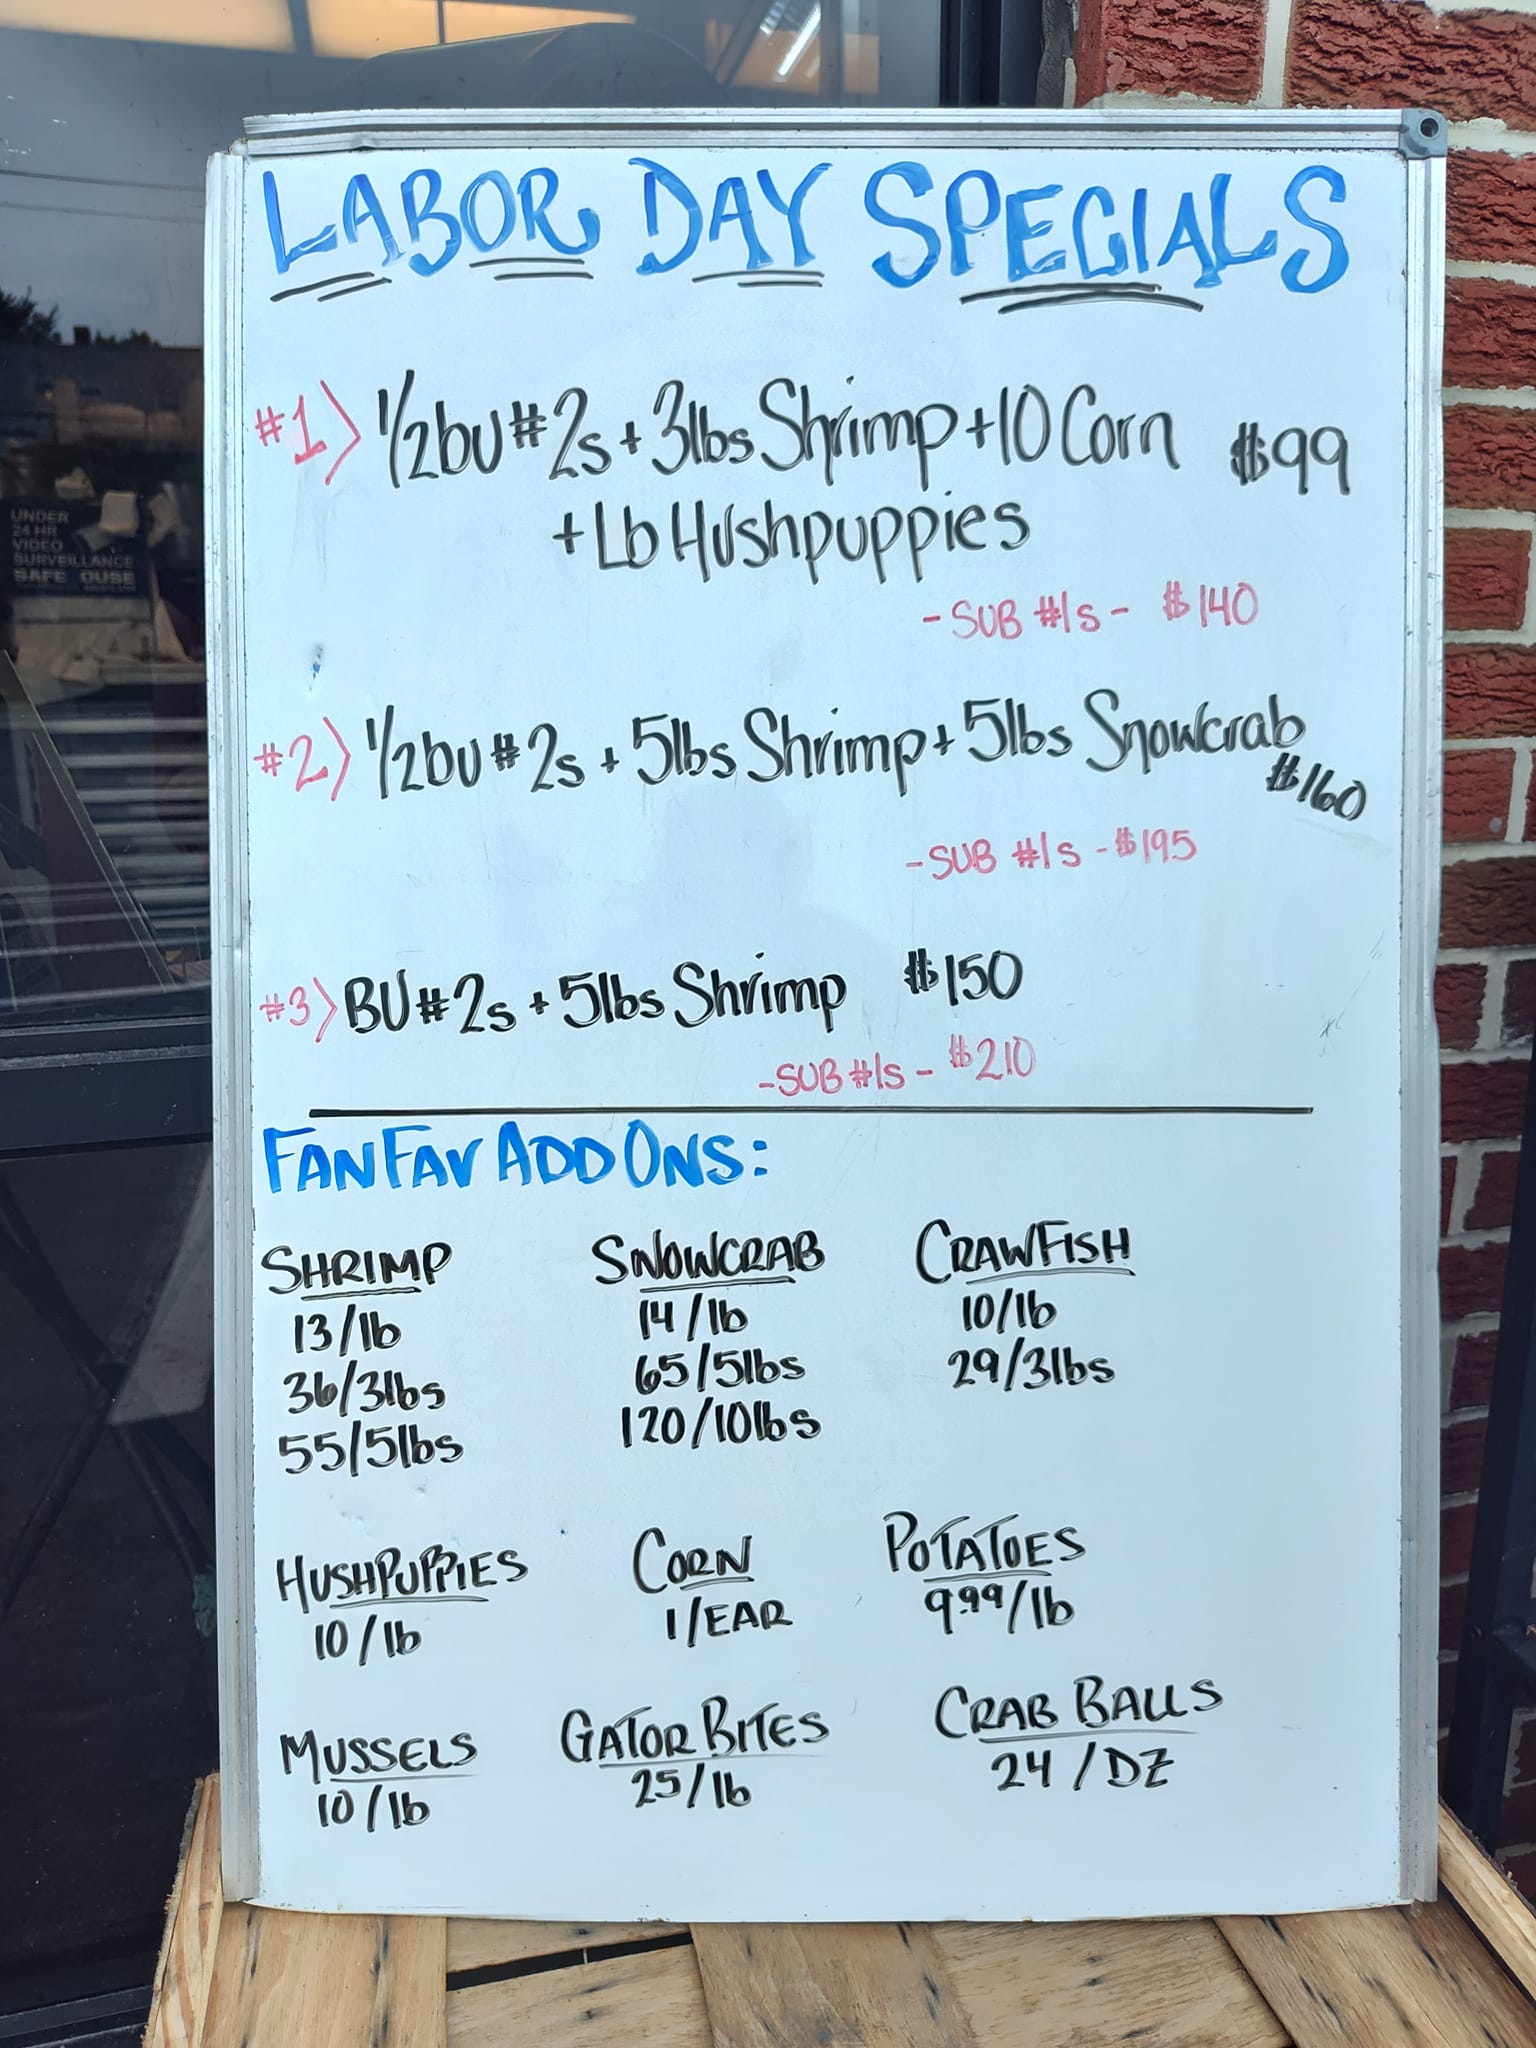 LABOR DAY SPECIALS
#1) 1/2bu #2s + 3lbs Shrimp + 10 Corn $99
+ Lb Hushpuppies
- SUB #1s - $140
#2) 1/2bu #2s + 5lbs Shrimp + 5lbs Snowcrab
$160
- SUB #1s - $195
#3) BU #2s + 5lbs Shrimp $150
- SUB #1s - $210
FAN FAV ADD ONS:
SHRIMP
13/lb
36/3lbs
55/5lbs
SNOWCRAB
14/lb
65/5lbs
120/10lbs
CRAWFISH
10/lb
29/3lbs
HUSHPUPPIES
10/lb
CORN
1/EAR
POTATOES
9.99/lb
MUSSELS
10/lb
GATOR BITES
25/lb
CRAB BALLS
24/DZ
UNDER
24 HR
VIDEO
SURVEILLANCE
SAFE OUSE